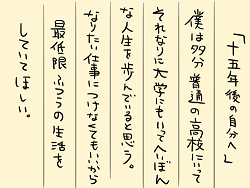 「十五年後の自分へ」
僕は多分普通の高校にいって
それなりに大学にもいってへいぼん
な人生を歩んでいると思う。
なりたい仕事につけなくてもいいから
最低限ふつうの生活を
していてほしい。